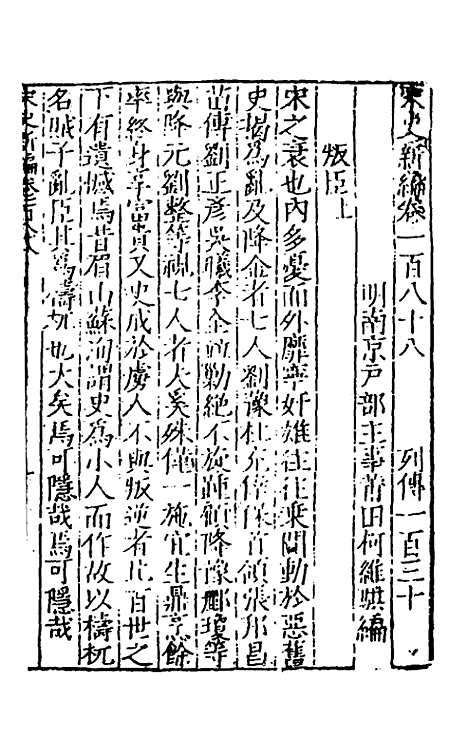 宋史新編卷一百八十八　列傳一百三十
明南京戶部主事莆田柯維騏編
叛臣上
宋之衰也內多憂而外靡寧奸雄往往乘間動於惡舊
史揭為亂及降金者七人劉豫杜充倖保首領張邦昌
苗傅劉正彥吳曦李全並勦絕不旋踵顧降豫酈瓊等
與降元劉整等視七人者大奚殊僅一施宜生鼎烹餘
率終身享富貴又史成於虜人不與叛逆者比百世之
下有遺憾焉昔眉山蘇洵謂史為小人而作故以檮杌
名賊子亂臣其為檮杌也大矣焉可隱哉焉可隱哉
宋史新編卷一百八十八